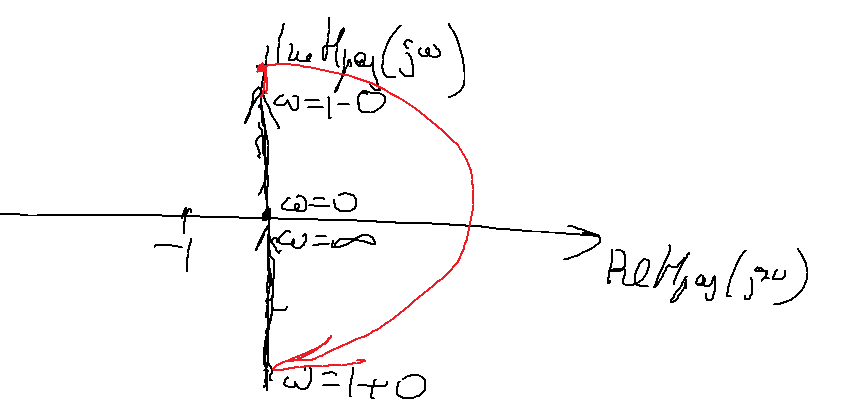 Im Hраз(jω)
ω=1-0
ω=0
-1
ω=∞
Re Hраз(jω)
ω=1+0